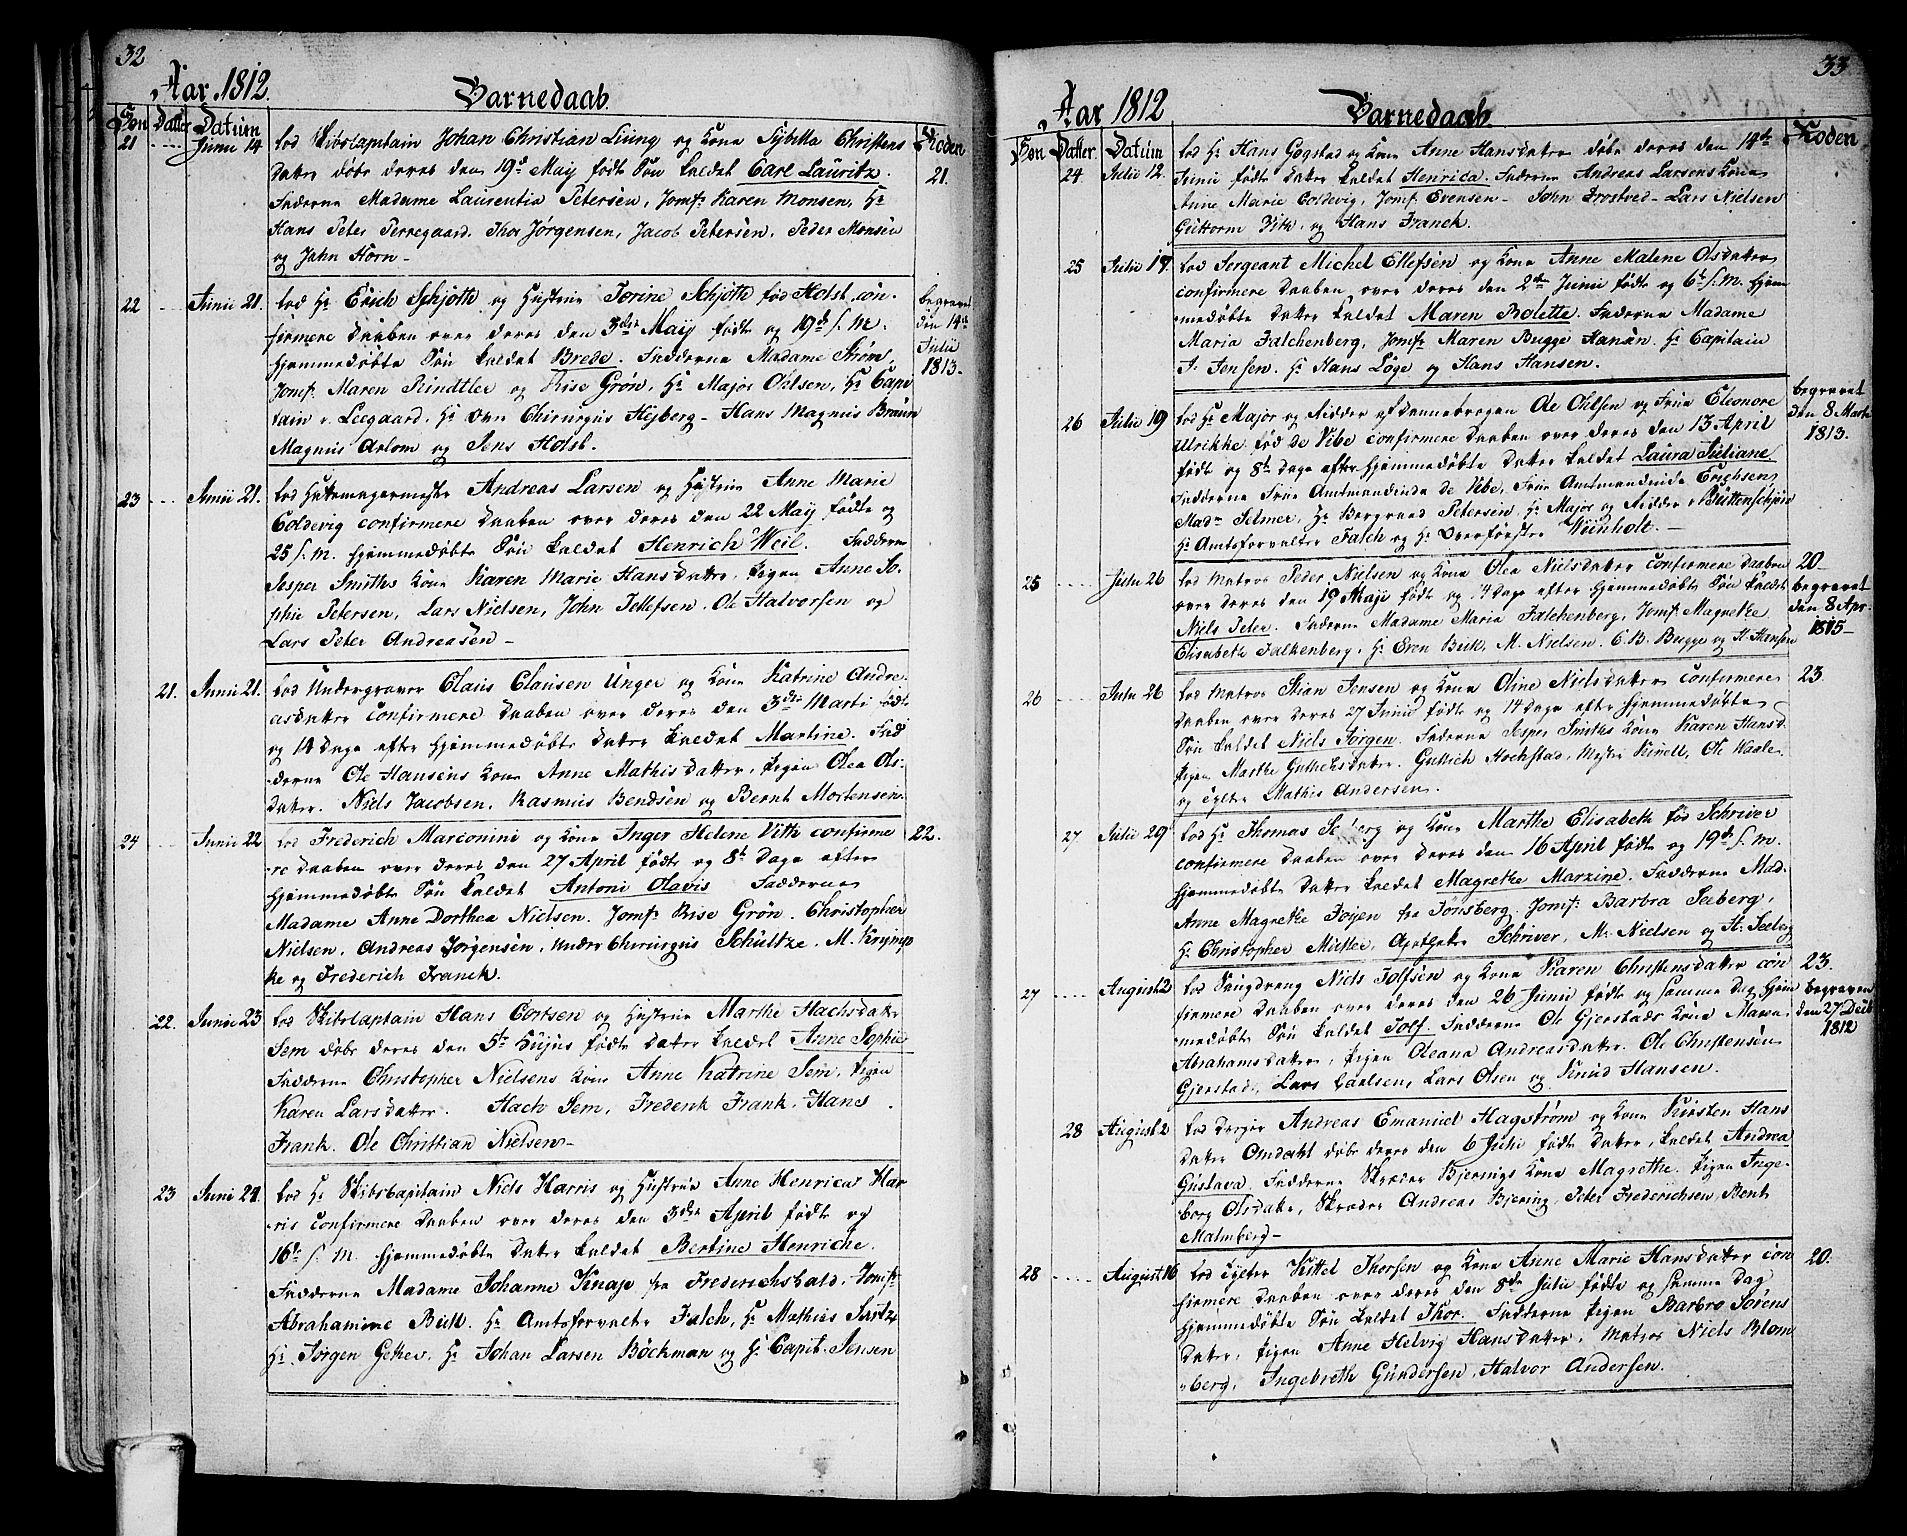 32
Aar 1812. Barnedaab.
Søn Datter Datum Roden
21 Junii 14 lod Skibscapitain Johan Christian Liung og Kone Sybilla Christens
datter døbe deres den 19de May fødte Søn kaldet Carl Lauritz. 21.
Fadderne Madame Laurentia Petersen, Jomfr Karen Monsen, Hr
Hans Peter Perregaard, Thor Jørgensen, Jacob Petersen, Peder Monsen
og John Horn
22 Junii 21. lod Hr Erich Schjøtte og Hustrue Torine Schjøtte fød Holst con- begravet
firmere Daaben over deres den 3die Maij fødte og 19de s. M. den 14de
hjemmedøbte Søn kaldet Brede. Fadderne Madame Strøm, Julii
Jomfr Maren Rindtler og Rise Grøn, Hr Major Ohlsen, Hr Capi 1813.
tain v. Leegaard, Hr Over Chirurgus Hejberg - Hans Magnus Bruun
Magnus Arlom og Jens Holst.
23 Junii 21. lod Huttemagermester Andreas Larsen og Hustrue Anne Marie
Coldevig confirmere Daaben over deres den 22 Maij fødte og
25 s. M. hjemmedøbte Søn kaldet Henrich Weil. Faddere
Jesper Smiths Kone Karen Marie Hansdatter, Pigen Anne So-
phie Petersen, Lars Nielsen, John Tellefsen, Ole Halvorsen og
Lars Peter Andreasen
21. Junii 21. lod Undergraver Claus Clausen Unger og Kone Katrine Andre-
asdatter confirmere Daaben over deres den 3die Marti fødte
og 14 Dage efter hjemmedøbte Datter kaldet Martine. Fad
derne Ole Hansens Kone Anne Mathisdatter, Pigen Olea Ols-
datter. Niels Jacobsen, Rasmus Bendsen og Bernt Mortensen
24 Junii 22 lod Frederich Marconini og Kone Inger Helene Vith confirme 22.
re Daaben over deres den 27 April fødte og 8te Dage efter
hjemmedøbte Søn kaldet Antoni Olavis Fadderne
Madame Anne Dorthea Nielsen. Jomfr Rise Grøn. Christopher
Nielsen, Andreas Jørgensen, Under Chirurgus Schultze, M. Krijmp
ke og Frederich Franck.
22. Junii 23 lod Skibscaptain Hans Cortsen og Hustrue Marthe Hachsdatter
Sem døbe deres den 5te Hujus fødte Datter kaldet Anne Sophie
Fadderne Christopher Nielsens Kone Anne Katrine Sem, Pigen
Karen Larsdatter. Hach Sem, Frederik Frank, Hans
Frank. Ole Christian Nielsen
23 Juni 24 lod Hr Skibscapitain Niels Harris og Hustrue Anne Henrica Har
ris confirmere Daaben over deres den 3die April fødte og
16de s. M. hjemmedøbte Datter kaldet Bertine Henriche.
Fadderne Madame Johanne Knap fra Frederichshald, Jomfr
Abrahamine Bull. Hr Amtsforvalter Falch, Hr Mathias Sartz
Hr Jørgen Gether, Hr Johan Larsen Böckman og Hr Capit. Jensen
33
Aar 1812 Barnedaab.
Søn Datter Datum Roden
24 Julii 12. lod Hr Hans Gogstad og Kone Anne Hansdatter døbe deres den 14de
Junii fødte Datter kaldet Henrica. Fadderne Andreas Larsens Kone
Anne Marie Coldevig, Jomfr Evensen - John Trostved - Lars Nielsen
Guttorm Vith, og Hans Franck.
25 Julii 17. lod Sergeant Michel Ellefsen og Kone Anne Malene Olsdatter
confirmere Daaben over deres den 2den Junii fødte og 6te s. M. hjem
medøbte Datter kaldet Maren Bolette. Fadderne Madame
Maria Falchenberg, Jomfr Maren Bugge Hansen. Hr Capitain
J. Jensen. Hr Hans Løge og Hans Hansen.
26 Julii 19 lod Hr Major og Ridder af Dannebrogen Ole Ohlsen og Frue Eleonore begravet
Ulrikke fød de Vibe confirmere Daaben over deres den 13 April den 8 Marti
fødte og 8te Dage efter hjemmedøbte Datter kaldet Laura Juliane 1813.
Fadderne Frue Amtmandinde de Vibe, Frue Amtmandinde Erichsen
Mad. Selmer, Hr Bergraad Petersen, Hr Major og Ridder v Buttenschiøn
Hr Amtsforvalter Falch og Hr Overførster Wiinholt.
25 Julii 26 lod Matros Peder Nielsen og Kone Olea Nielsdatter confirmere Daaben 20
over deres den 19 Maji fødte og 14 Dage efter hjemmedøbte Søn kaldet begravet
Niels Peter. Fadderne Madame Maria Falchenberg, Jomfr Magrethe den 8 Apr.
Elisabeth Falkenberg, Hr Even Bick, M. Nielsen, C. B. Bugge og H. Hansen 1815
26 Julii 26 lod Matros Stian Jensen og Kone Oline Nielsdatter confirmere 23.
Daaben over deres 27 Junii fødte og 14 Dage efter hjemmedøbte
Søn kaldet Niels Jørgen. Fadderne Jesper Smiths Kone Karen Hansd.
Pigen Marthe Gulliksdatter. Gullich Hochstad, Mester Kinell, Ole Waale
og Cytter Mathis Andersen.
27 Julii 29 lod Hr Thomas Seeberg og Kone Marthe Elisabeth fød Schriver
confirmere Daaben over deres den 16 April fødte og 19de s. M.
hjemmedøbte Datter kaldet Magrethe Marzine. Fadderne Mad.
Anne Magrethe Føyen fra Tønsberg, Jomfr Barbra Seeberg,
Hr Christopher Møller, Apotheker Schriver, M. Nielsen og H. Seeberg
27 August 2 lod Niels Tolfsen og Kone Karen Christensdatter con 23.
firmere Daaben over deres den 26 Junii fødte og samme Dag hjem begraven
medøbte Søn kaldet Tolf. Fadderne Ole Gjerstads Kone Maren den 27 Decb
Abrahamsdatter, Pigen Oleana Andreasdatter. Ole Christensen 1812
Gjerstad, Lars Carlsen, Lars Olsen og Knud Hansen.
28 August 2 lod Andreas Emanuel Hagstrøm og Kone Kirsten Hans
datter Omdahl døbe deres den 6 Julii fødte Datter, kaldet Andrea
Gustava. Fadderne Skræder Bjerings Kone Magrethe. Pigen Inge-
borg Olsdatter, Skræder Andreas Bjering, Peter Frederichsen, Bent
Malmberg
28 August 16 lod Cytter Kittel Thorsen og Kone Anne Marie Hansdatter con 20.
firmere Daaben over deres den 8de Julii fødte og samme Dag
hjemmedøbte Søn kaldet Thor. Fadderne Pigen Barbro Sørens
datter, Pigen Anne Helvig Hansdatter, Matros Niels Blom
berg, Ingebreth Gundersen, Halvor Andersen.